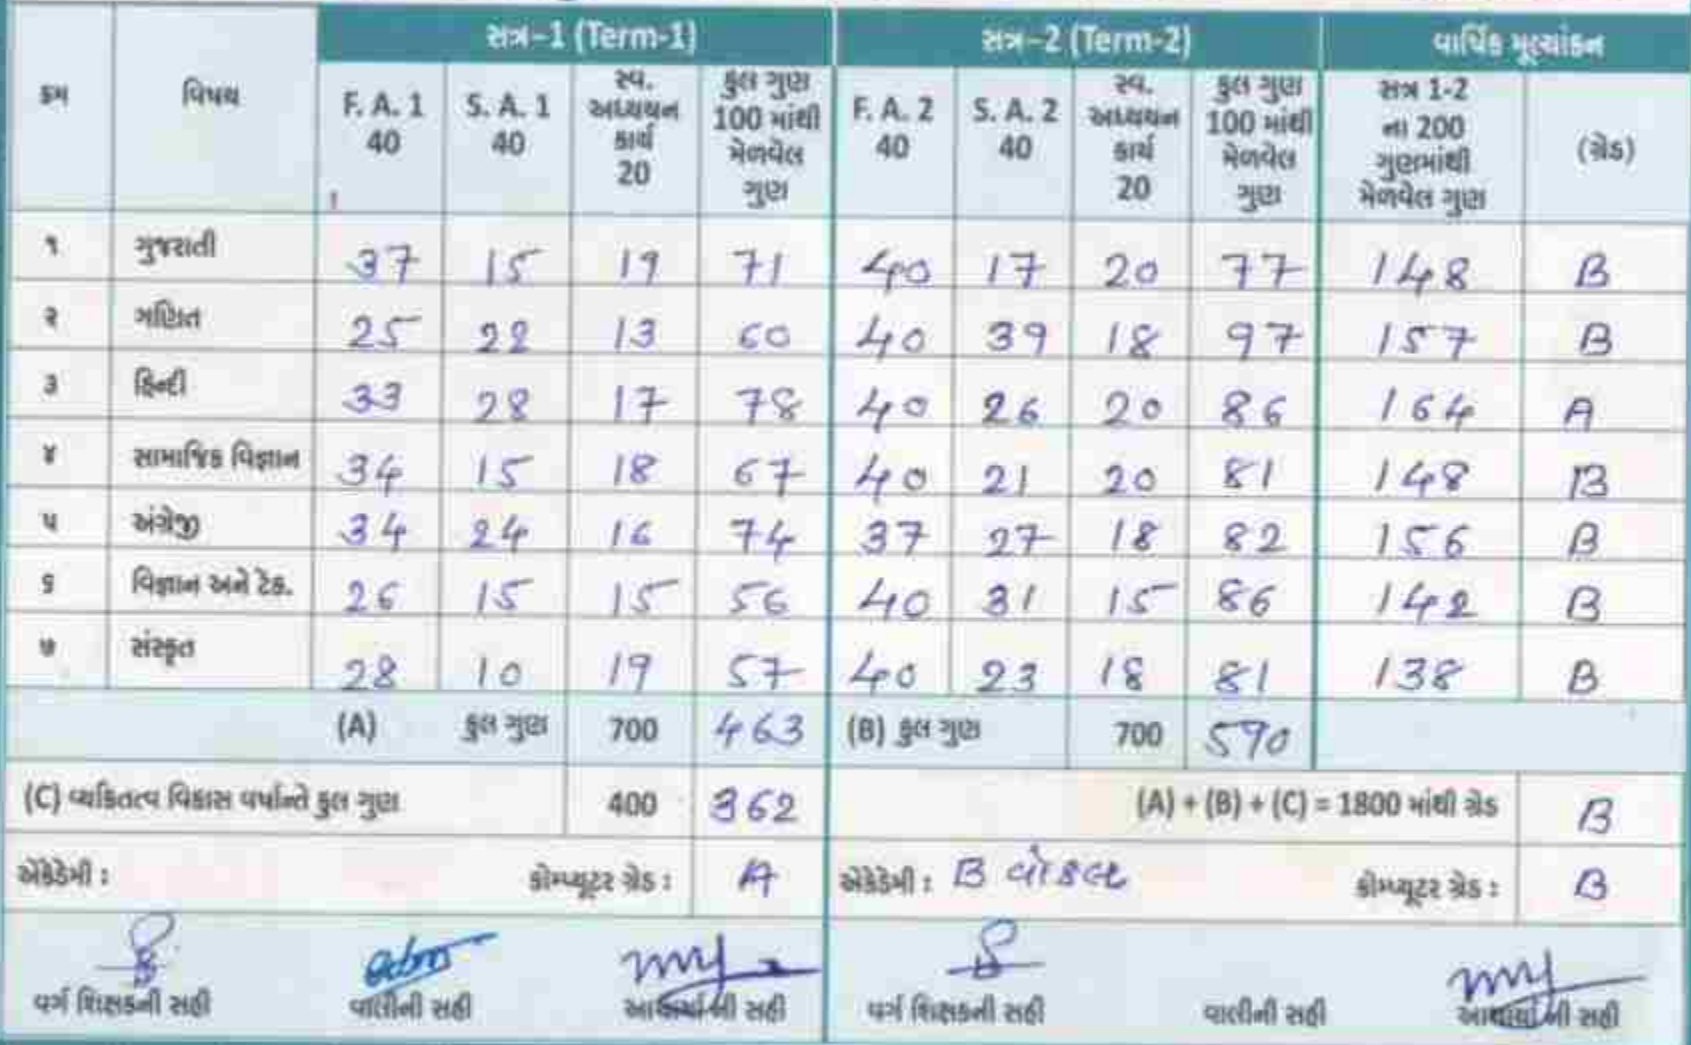 સત્ર–1 (Term-1) સત્ર–2 (Term-2) વાર્ષિક મૂલ્યાંકન
ક્રમ વિષય F. A. 1 40 S. A. 1 40 સ્વ. અધ્યયન કાર્ય 20 કુલ ગુણ 100 માંથી મેળવેલ ગુણ F. A. 2 40 S. A. 2 40 સ્વ. અધ્યયન કાર્ય 20 કુલ ગુણ 100 માંથી મેળવેલ ગુણ સત્ર 1-2 ના 200 ગુણમાંથી મેળવેલ ગુણ (ગ્રેડ)
૧ ગુજરાતી 37 15 19 71 40 17 20 77 148 B
૨ ગણિત 25 22 13 60 40 39 18 97 157 B
૩ હિન્દી 33 28 17 78 40 26 20 86 164 A
૪ સામાજિક વિજ્ઞાન 34 15 18 67 40 21 20 81 148 B
૫ અંગ્રેજી 34 24 16 74 37 27 18 82 156 B
૬ વિજ્ઞાન અને ટેક. 26 15 15 56 40 31 15 86 142 B
૭ સંસ્કૃત 28 10 19 57 40 23 18 81 138 B
(A) કુલ ગુણ 700 463 (B) કુલ ગુણ 700 590
(C) વ્યકિતત્વ વિકાસ વર્ષાન્તે કુલ ગુણ 400 362 (A) + (B) + (C) = 1800 માંથી ગ્રેડ B
એકેડેમી : કોમ્પ્યૂટર ગ્રેડ : A એકેડેમી : B વોકલ કોમ્પ્યૂટર ગ્રેડ : B
વર્ગ શિક્ષકની સહી વાલીની સહી આચાર્યાની સહી વર્ગ શિક્ષકની સહી વાલીની સહી આચાર્યાની સહી